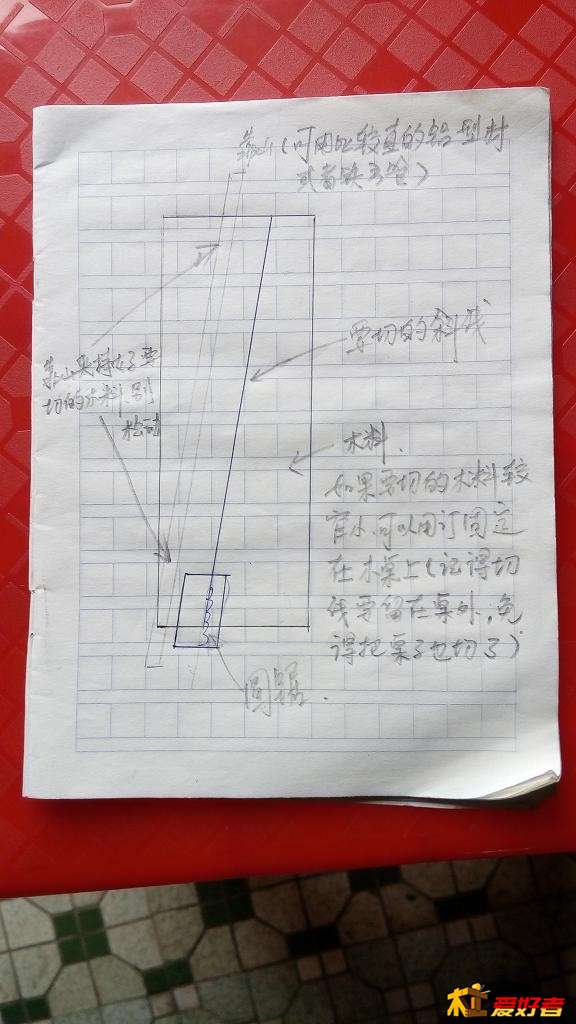 靠山(可用比较直的铝型材
或者铁方管)
要切的斜线
靠山夹持好了要
切的木料,别
松动
木料.
如果要切的木料较
窄小可以用订固定
在木桌上(记得切
线要留在桌外,免
得把桌子也切了)
圆锯.
爱好者